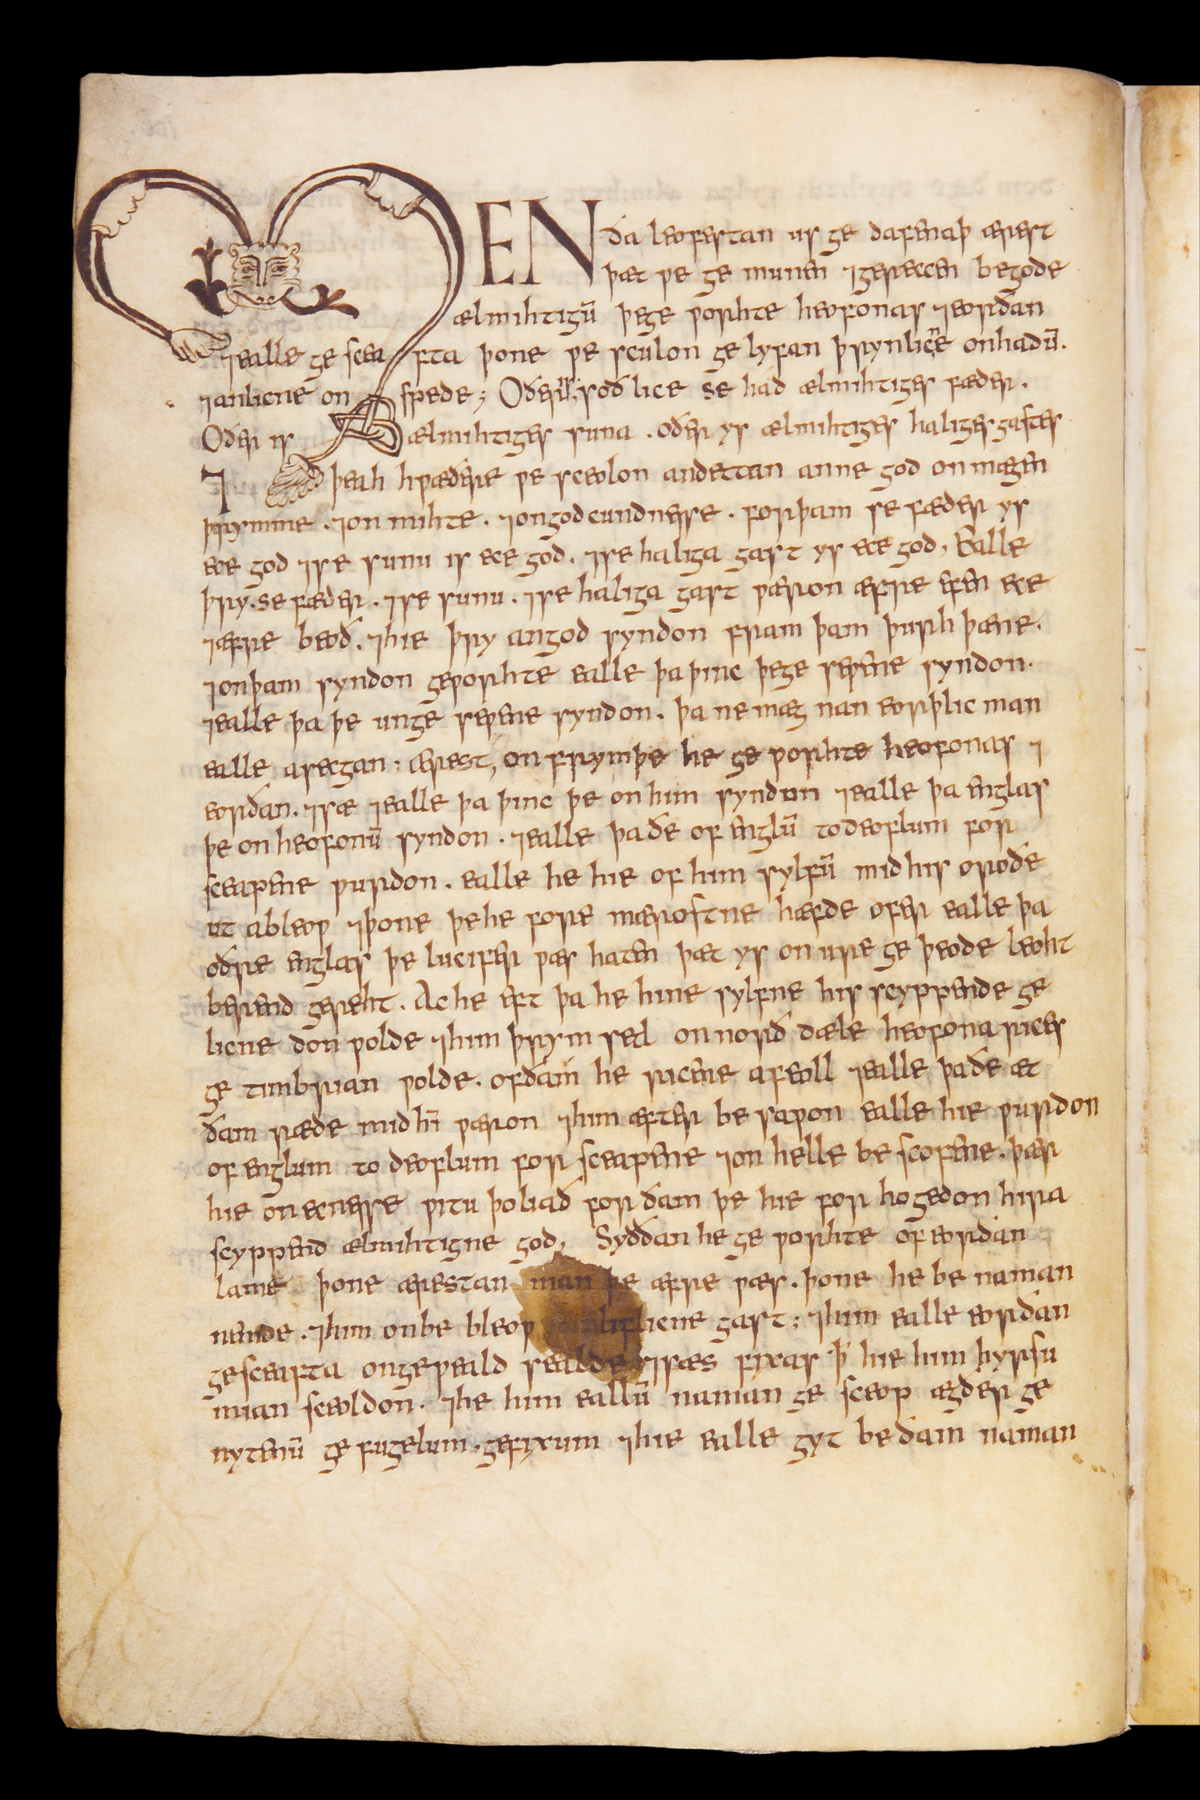 MEN ða leofestan us ge dafenaþ ærest
þæt ƿe ge munen ⁊gereccen begode
ælmihtigū þege ƿorhte heofonas ⁊eorðan
⁊ealle ge scea fta þone ƿe sculon ge lyfan þrynlicne onhadū.
⁊anlicne on spede; Oðer soð lice se had ælmihtiges fæder.
Oðer is ælmihtiges suna . oðer ys ælmihtiges haliges gastes
⁊ þeah hƿæðere ƿe sceolon andettan anne god on mægen
þrymme . ⁊on mihte . ⁊ongodcundnesse . forþam se fæder ys
ece god ⁊se sunu is ece god . ⁊se haliga gast ys ece god, Ealle
þry . se fæder . ⁊se sunu . ⁊se haliga gast ƿæron æfre efen ece
⁊æfre beoð . ⁊hie þry an god syndon fram þam þurh þære .
⁊onþam syndon geƿorhte ealle þa þinc þege seƿene syndon .
⁊ealle þa þe unge seƿene syndon . þa ne mæg nan eorþlic man
ealle asecgan ; ærest, on frymþe he ge ƿorhte heofonas ⁊
eorðan . ⁊sæ ⁊ealle þa þinc þe on him syndon ⁊ealle þa englas
þe on heofonū syndon . ⁊ealle þa ðe of englū to deoflum for
sceapene ƿurdon . ealle he hie of him sylfū mid his oroðe
ut ableoƿ ⁊þone þe he fore mærostne hæfde ofer ealle þa
oðre englas þe lucifer ƿæs haten þæt ys on ure ge þeode leoht
berend gereht . Ac he eft þa he hine sylfne his scyppende ge
licne don ƿolde ⁊him þrym setl on norð dæle heofona rices
ge timbrian ƿolde . of ðam he ricene afeoll ⁊ealle þa ðe æt
ðam ræde mid hī ƿæron ⁊him æfter be saƿon ealle hie ƿurdon
of englum to deoflum for sceapene ⁊on helle be scofene . þær
hie on ecnesse ƿitu þoliað for ðam þe hie for hogedon hira
scyppend ælmihtigne god, Syððan he ge ƿorhte of eorðan
lame þone ærestan man þe æfre ƿæs . þone he be naman
nemde . ⁊him onbe bleoƿ licne gast ; ⁊him ealle eorðan
gesceafta on geƿeald sealde ⁊sæs fixas þ hie him hyrsu
mian sceoldon . ⁊he him eallū naman ge sceop ægðer ge
nytenū ge fugelum . gefixum ⁊hie ealle gyt be ðam naman